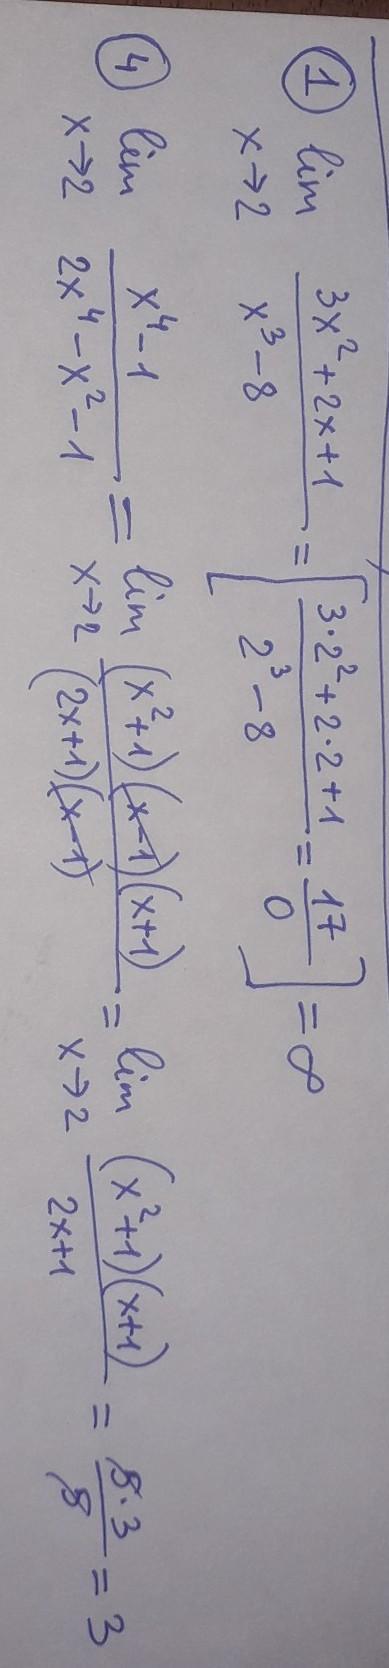 ① lim x→2 (3x² + 2x + 1)/(x³ - 8) = [(3·2² + 2·2 + 1)/(2³ - 8) = 17/0] = ∞
④ lim x→2 (x⁴ - 1)/(2x⁴ - x² - 1) = lim x→2 ((x² + 1)(x - 1)(x + 1))/((2x + 1)(x - 1)) = lim x→2 ((x² + 1)(x + 1))/(2x + 1) = (5·3)/5 = 3